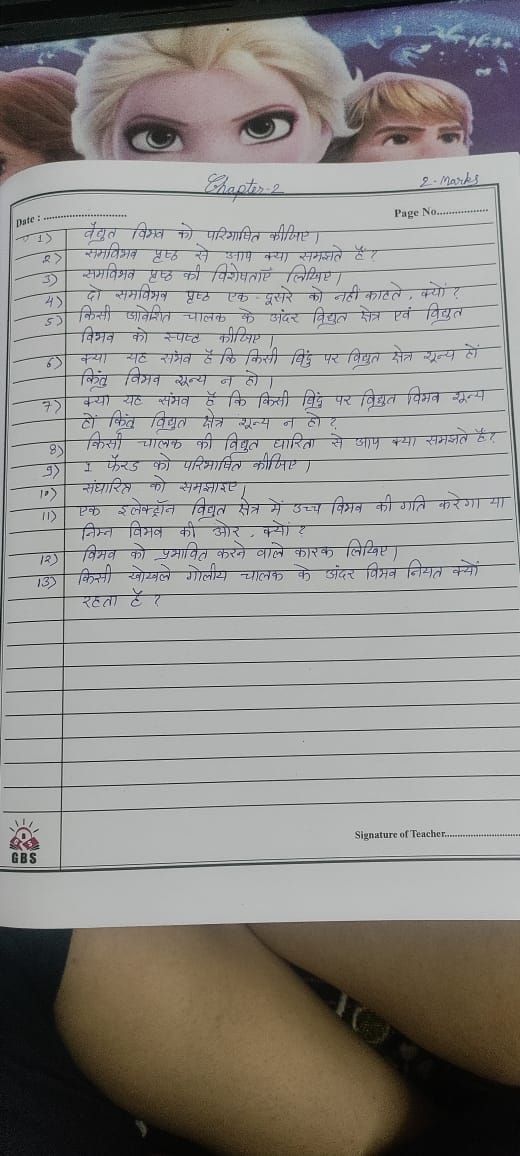 Chapter-2
2-Marks
Date :
Page No.
1) वैद्युत विभव को परिभाषित कीजिए।
2) समविभव पृष्ठ से आप क्या समझते हैं?
3) समविभव पृष्ठ की विशेषताएँ लिखिए।
4) दो समविभव पृष्ठ एक-दूसरे को नहीं काटते, क्यों?
5) किसी आवेशित चालक के अंदर विद्युत क्षेत्र एवं विद्युत
विभव को स्पष्ट कीजिए।
6) क्या यह संभव है कि किसी बिंदु पर विद्युत क्षेत्र शून्य हों
किंतु विभव शून्य न हो।
7) क्या यह संभव है कि किसी बिंदु पर विद्युत विभव शून्य
हों किंतु विद्युत क्षेत्र शून्य न हो?
8) किसी चालक की विद्युत धारिता से आप क्या समझते हैं?
9) 1 फैरड को परिभाषित कीजिए।
10) संधारित्र को समझाइए।
11) एक इलेक्ट्रॉन विद्युत क्षेत्र में उच्च विभव की गति करेगा या
निम्न विभव की ओर, क्यों?
12) विभव को प्रभावित करने वाले कारक लिखिए।
13) किसी खोखले गोलीय चालक के अंदर विभव नियत क्यों
रहता है?
Signature of Teacher
GBS